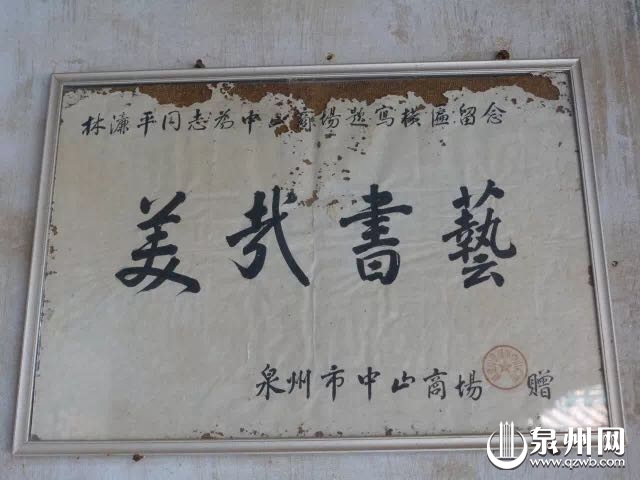 林濂平同志为中山商場题寫横匾留念
美哉書藝
泉州市中山商場 贈
泉州网
www.qzwb.com